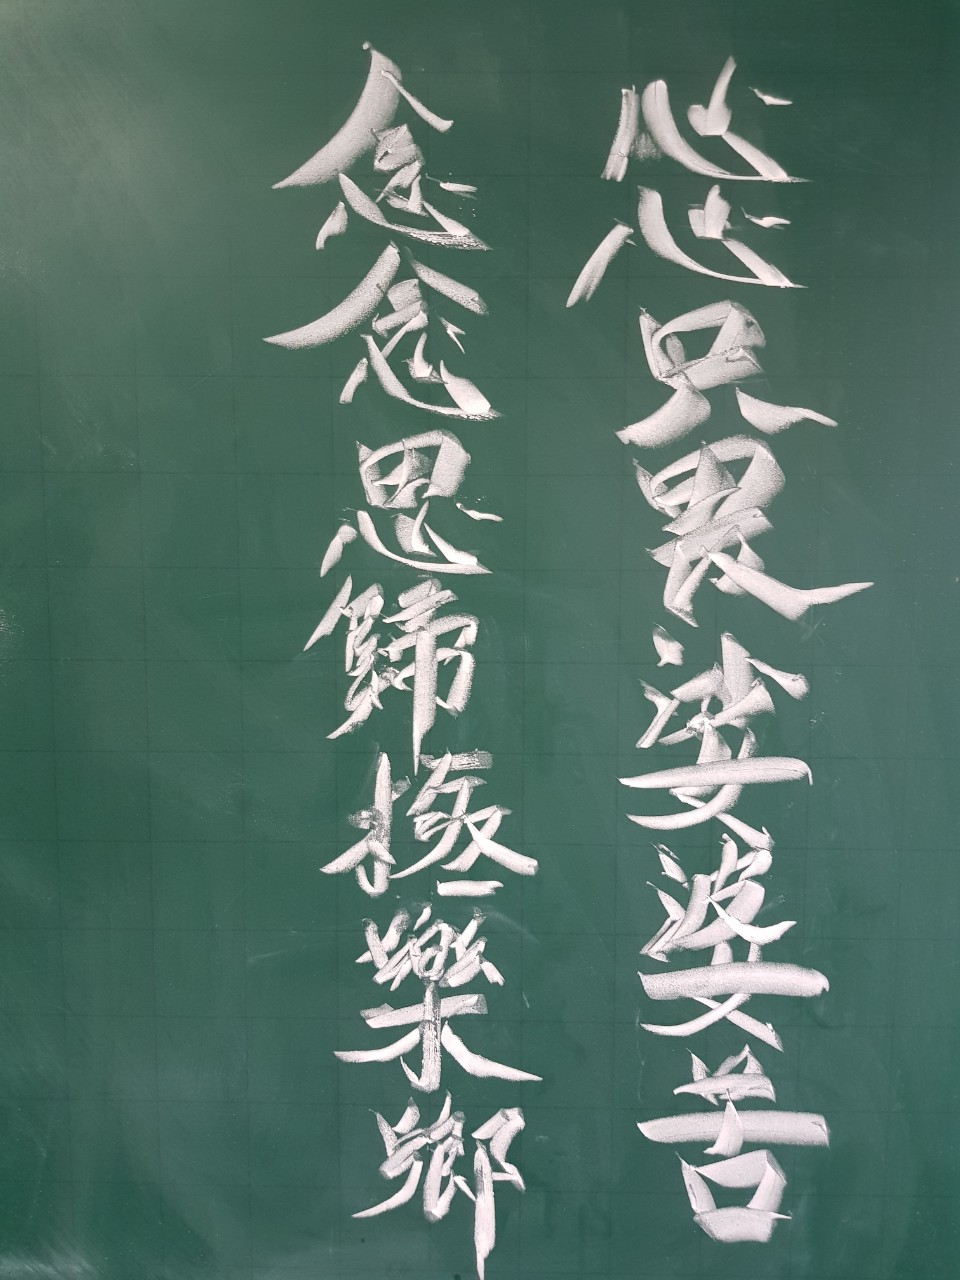 心心只畏娑婆苦
念念思歸極樂鄉